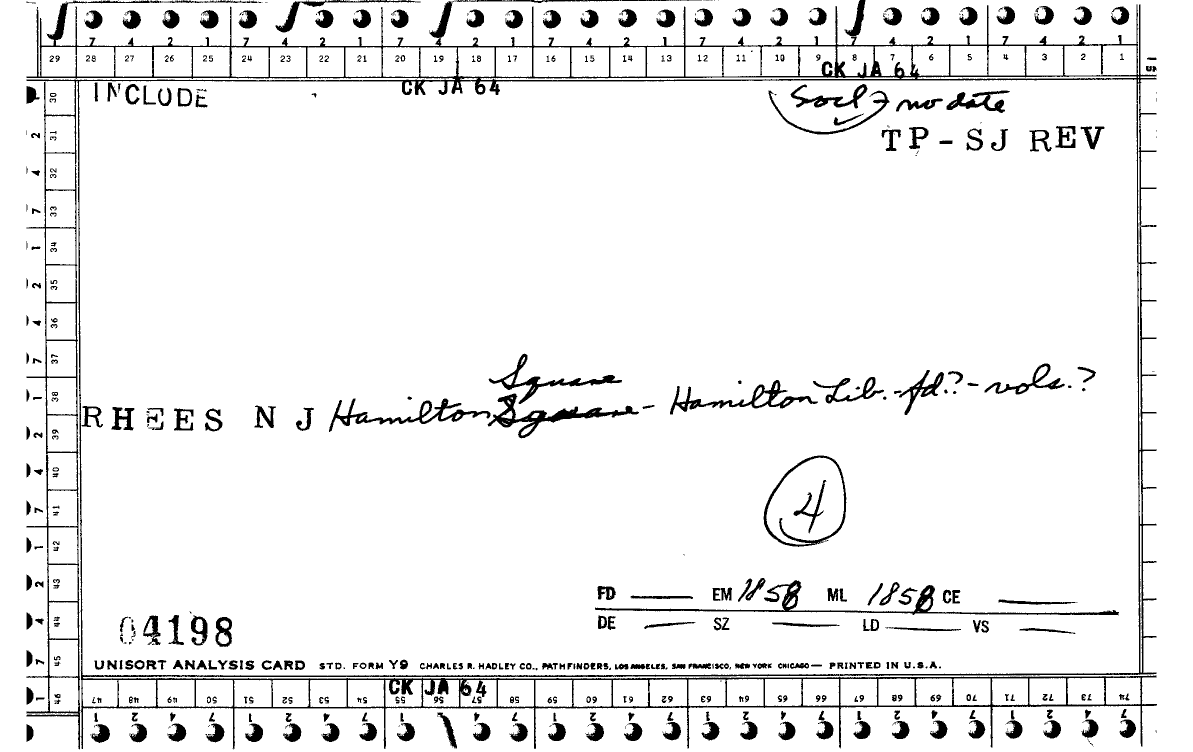 7 4 2 1 7 4 2 1 7 4 2 1 7 4 2 1 7 4 2 1 7 4 2 1 7 4 2 1
29 28 27 26 25 24 23 22 21 20 19 18 17 16 15 14 13 12 11 10 9 8 7 6 5 4 3 2 1
CK JA 64 CK JA 64
INCLUDE
Socl no date
TP-SJ REV
30 31 32 33 34 35 36 37 38 39 40 41 42 43 44 45 46
1 2 4 7 1 2 4 7 1 2 4 7 1 2 4 7 1
Square
RHEES N J Hamilton Square - Hamilton Lib. - fd.? - vols.?
4
FD ___ EM 1858 ML 1858 CE ___
DE ___ SZ ___ LD ___ VS ___
04198
UNISORT ANALYSIS CARD STD. FORM Y9 CHARLES R. HADLEY CO., PATHFINDERS, LOS ANGELES, SAN FRANCISCO, NEW YORK CHICAGO — PRINTED IN U.S.A.
CK JA 64
47 48 49 50 51 52 53 54 55 56 57 58 59 60 61 62 63 64 65 66 67 68 69 70 71 72 73 74
1 2 4 7 1 2 4 7 1 2 4 7 1 2 4 7 1 2 4 7 1 2 4 7 1 2 4 7